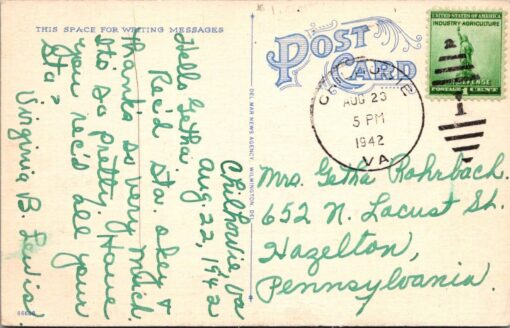 THIS SPACE FOR WRITING MESSAGES
Chilhowie Va
Aug. 22, 1942
Hello Getha:
Rec'd sta. okey &
thanks so very much.
Its so pretty. Have
you rec'd all your
Sta?
Virginia B. Lewis.
66686
DEL MAR NEWS AGENCY, WILMINGTON, DEL.
POST CARD
AUG 23
5 PM
1942
VA.
UNITED STATES OF AMERICA
INDUSTRY-AGRICULTURE
FOR DEFENSE
POSTAGE 1 CENT
Mrs. Getha Rohrbach.
652 N. Locust St.
Hazelton,
Pennsylvania.